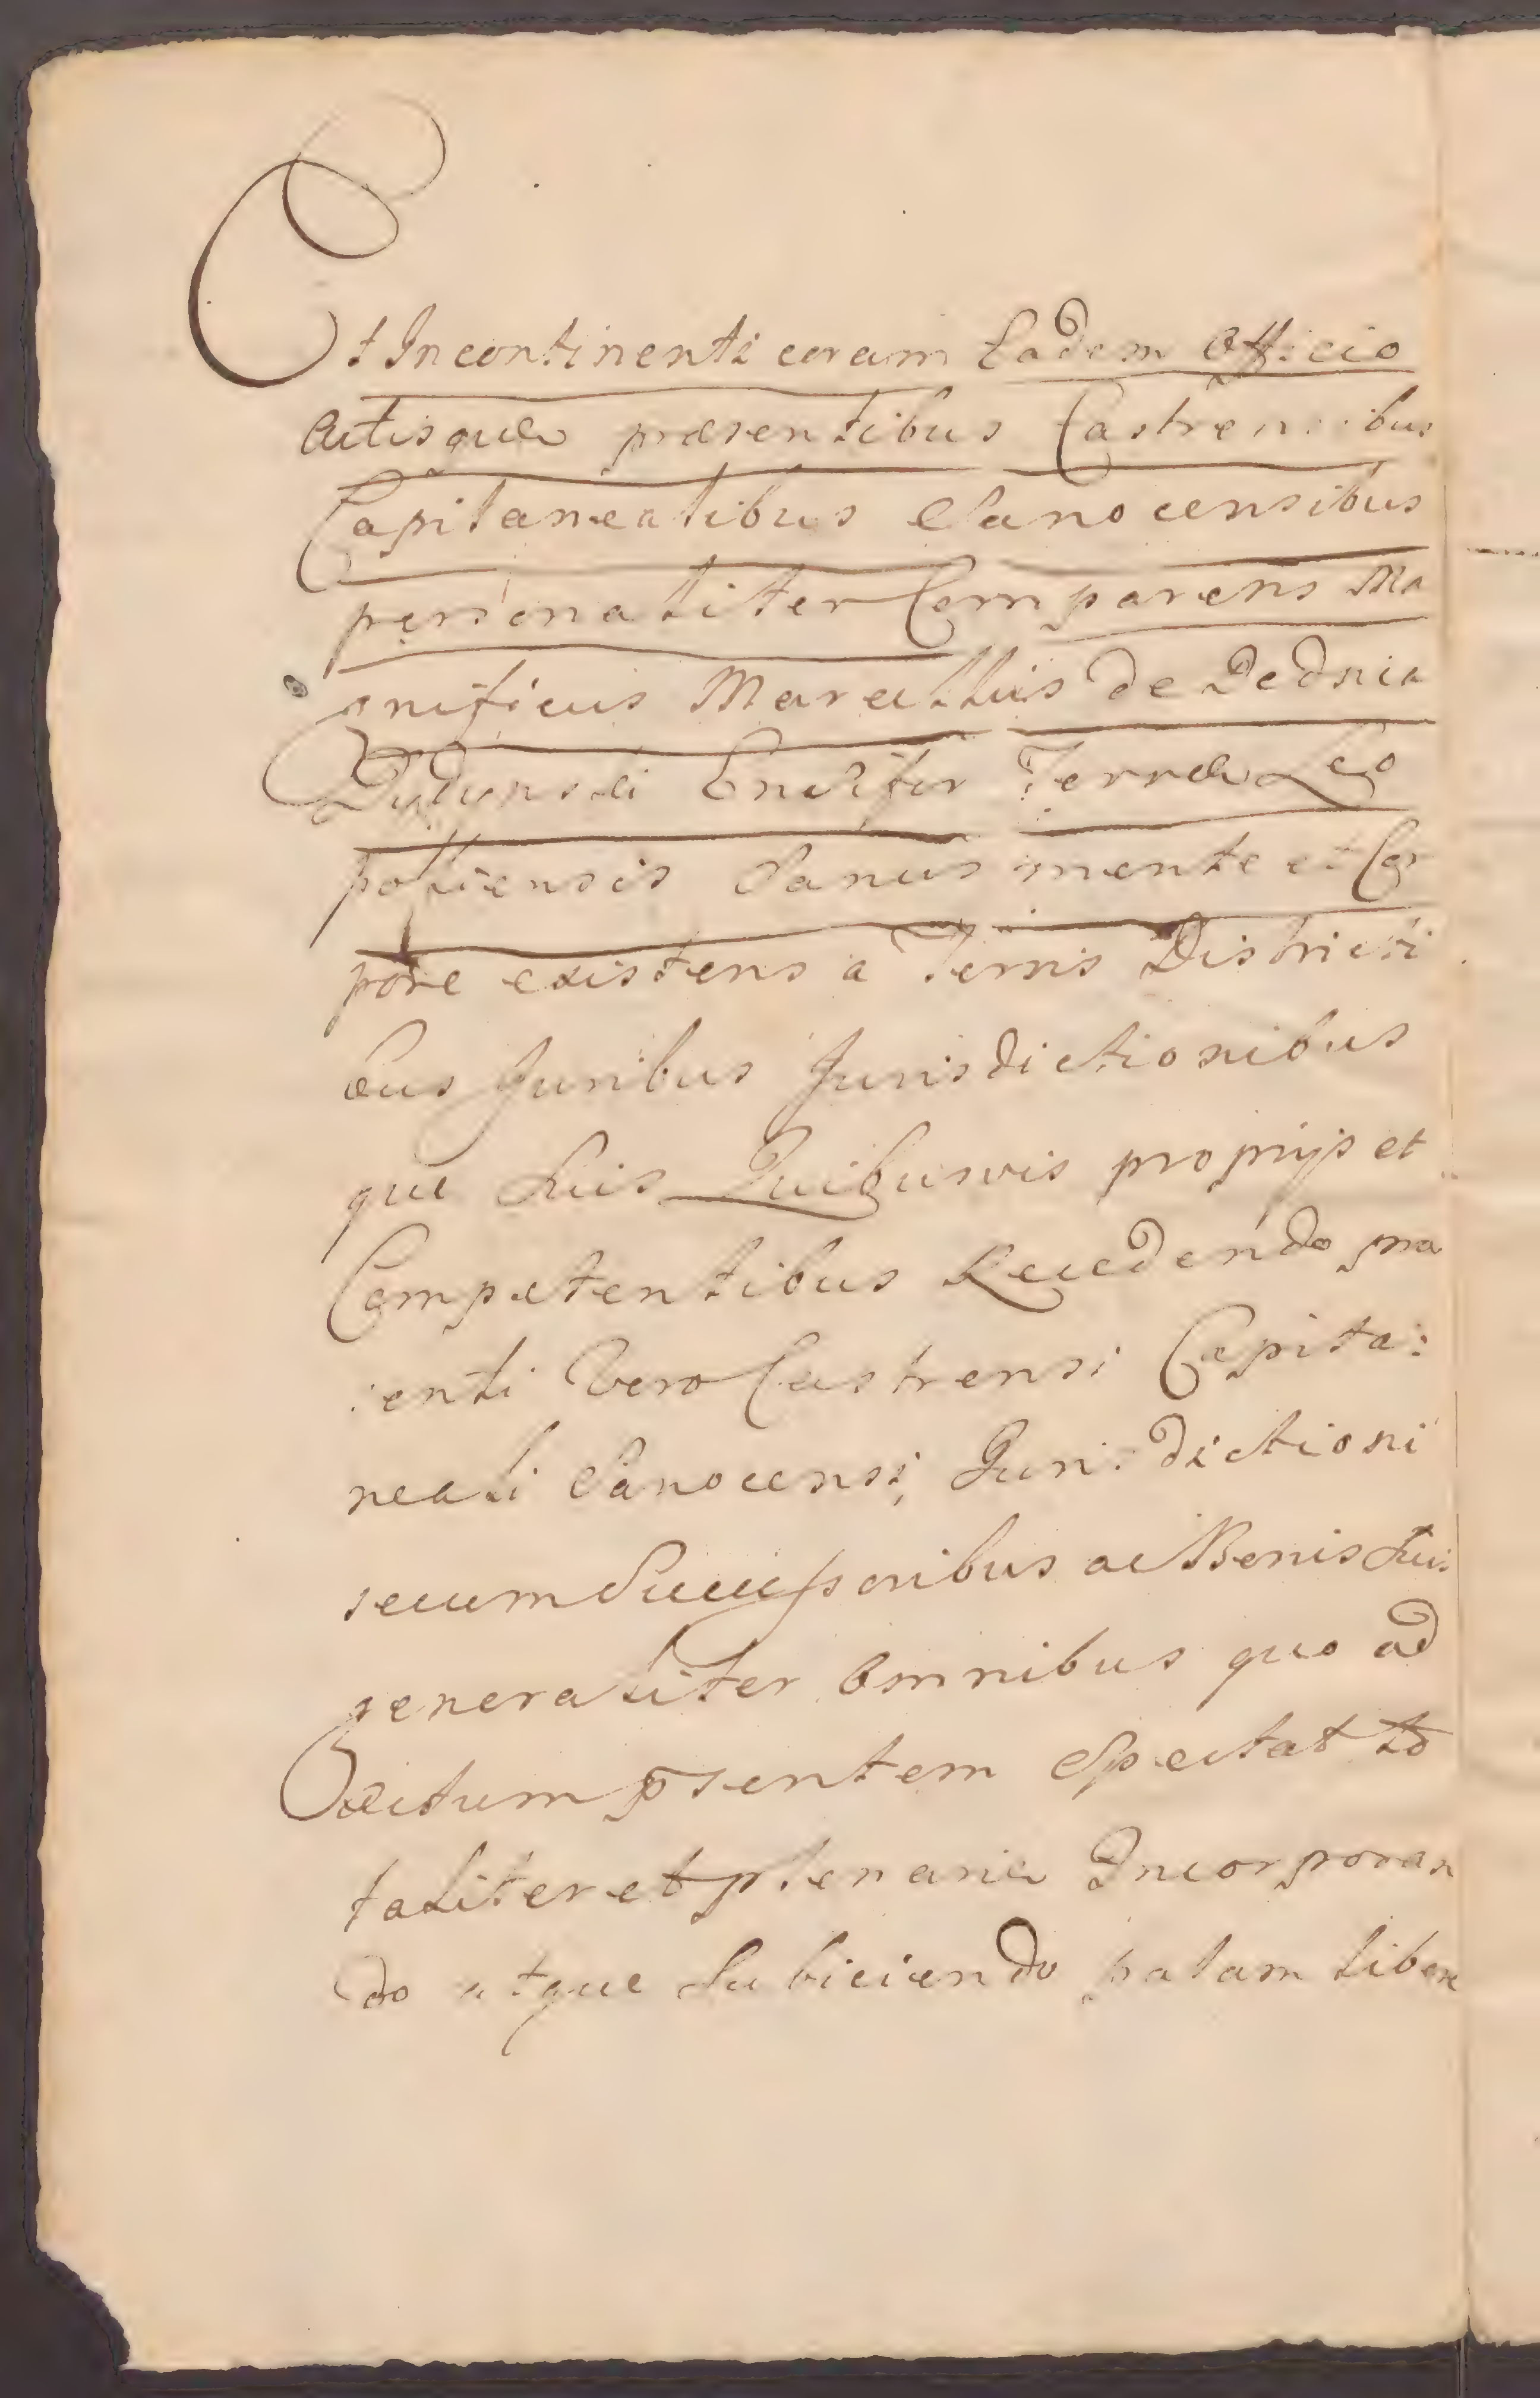 Et Incontinenti coram Eodem Officio
Actisque præsentibus Castrensibus
Capitanealibus Sanocensibus
personaliter Comparens Ma
gnificus Marcellus de Dednia
Ensifer Terræ Leo
poliensis Sanus mente et Cor
pore existens a Terris Districti
bus Juribus Jurisdictionibus
que Suis Quibusvis proprijs et
Competentibus Recedendo præ
senti Vero Castrensi Capita:
neali Sanocensi, Jurisdictioni
secum Successoribus ac Bonis Suis
generaliter Omnibus quo ad
Actum p̄sentem Spectat to
taliter et plenarie Incorporan
do atque Subiciendo palam libere